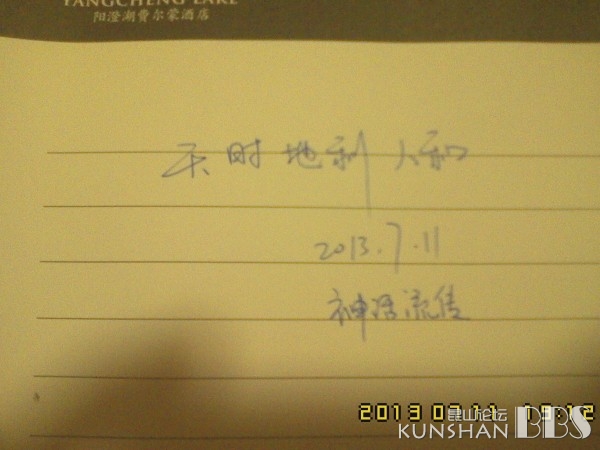 YANGCHENG LAKE
阳澄湖费尔蒙酒店
天时地利人和
2013.7.11
神话流传
2013 07 11 13:12
昆山论坛
KUNSHAN BBS